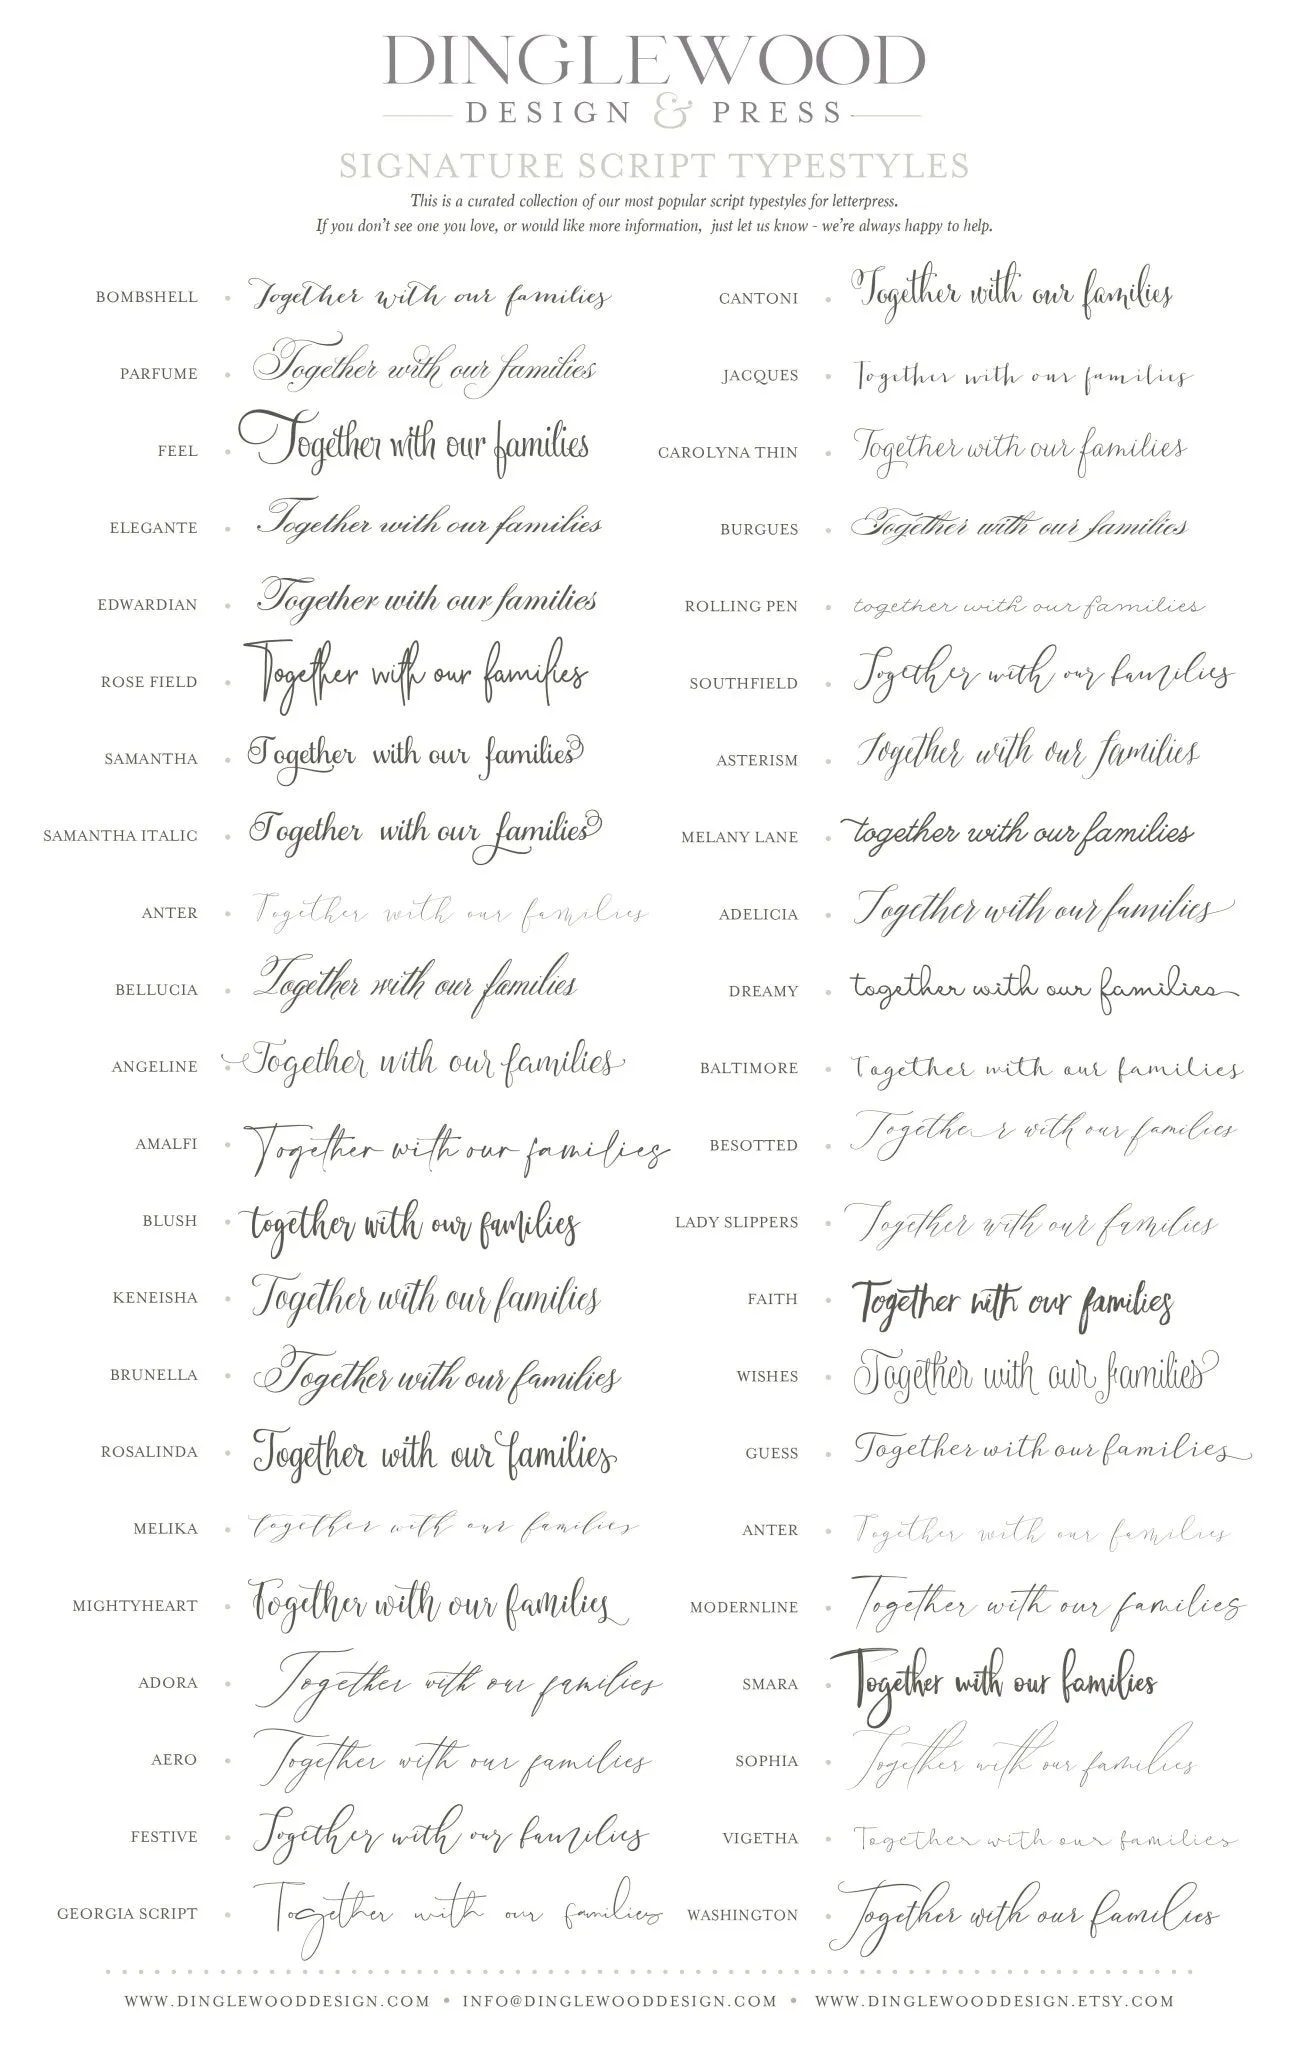 DINGLEWOOD
DESIGN & PRESS
SIGNATURE SCRIPT TYPESTYLES
This is a curated collection of our most popular script typestyles for letterpress.
If you don't see one you love, or would like more information, just let us know - we're always happy to help.
BOMBSHELL • Together with our families
PARFUME • Together with our families
FEEL • Together with our families
ELEGANTE • Together with our families
EDWARDIAN • Together with our families
ROSE FIELD • Together with our families
SAMANTHA • Together with our families
SAMANTHA ITALIC • Together with our families
ANTER • Together with our families
BELLUCIA • Together with our families
ANGELINE • Together with our families
AMALFI • Together with our families
BLUSH • together with our families
KENEISHA • Together with our families
BRUNELLA • Together with our families
ROSALINDA • Together with our families
MELIKA • together with our families
MIGHTYHEART • Together with our families
ADORA • Together with our families
AERO • Together with our families
FESTIVE • Together with our families
GEORGIA SCRIPT • Together with our families
CANTONI • Together with our families
JACQUES • Together with our families
CAROLYNA THIN • Together with our families
BURGUES • Together with our families
ROLLING PEN • together with our families
SOUTHFIELD • Together with our families
ASTERISM • Together with our families
MELANY LANE • together with our families
ADELICIA • Together with our families
DREAMY • together with our families
BALTIMORE • Together with our families
BESOTTED • Together with our families
LADY SLIPPERS • Together with our families
FAITH • Together with our families
WISHES • Together with our families
GUESS • Together with our families
ANTER • Together with our families
MODERNLINE • Together with our families
SMARA • Together with our families
SOPHIA • Together with our families
VIGETHA • Together with our families
WASHINGTON • Together with our families
WWW.DINGLEWOODDESIGN.COM • INFO@DINGLEWOODDESIGN.COM • WWW.DINGLEWOODDESIGN.ETSY.COM